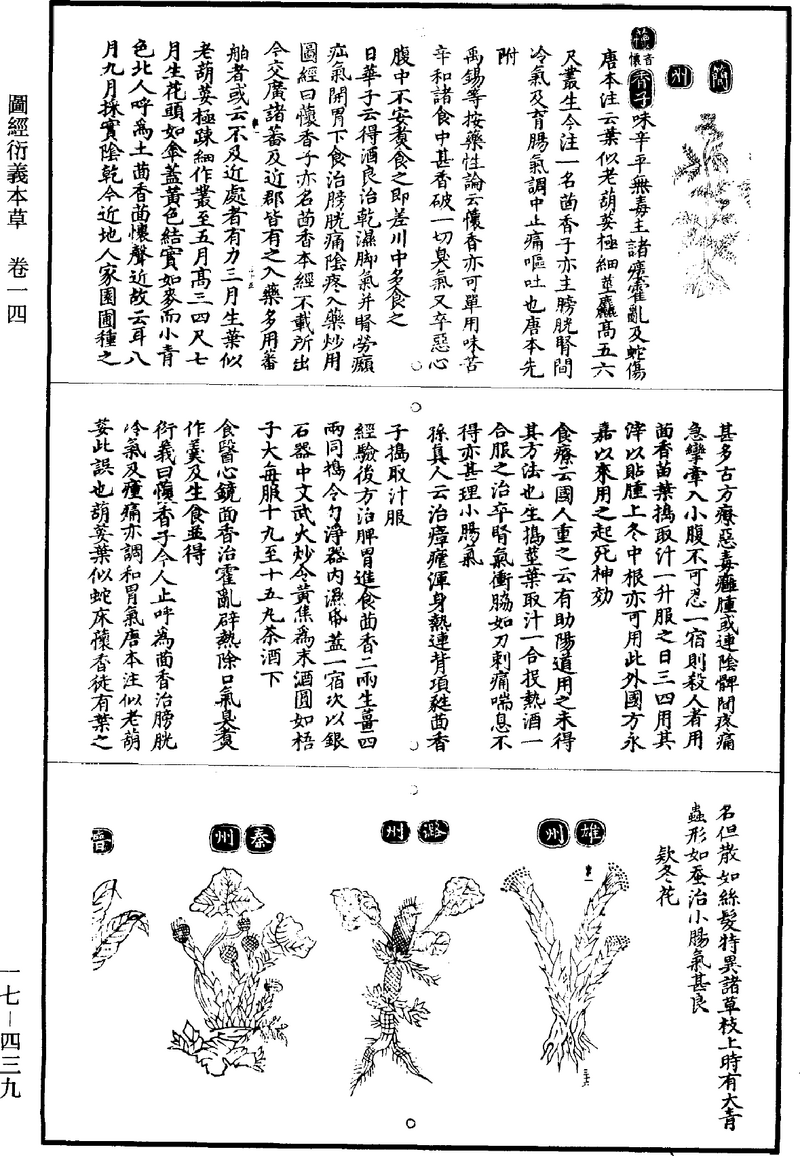 圖經衍義本草　卷一四
一七—四三九
簡州
懷香子味辛平無毒主諸瘻霍亂及蛇傷
音懷
唐本注云葉似老葫荽極細莖麤高五六
尺叢生今注一名茴香子亦主膀胱腎間
冷氣及育腸氣調中止痛嘔吐也唐本先
附
禹錫等按藥性論云懷香亦可單用味苦
辛和諸食中甚香破一切臭氣又卒惡心
腹中不安煑食之即差川中多食之
日華子云得酒良治乾濕脚氣并腎勞㿗
疝氣開胃下食治膀胱痛陰疼入藥炒用
圖經曰懷香子亦名茴香本經不載所出
今交廣諸蕃及近郡皆有之入藥多用蕃
舶者或云不及近處者有力三月生葉似
老葫荽極踈細作叢至五月高三四尺七
月生花頭如傘蓋黃色結實如麥而小青
色北人呼為土茴香茴懷聲近故云耳八
月九月採實陰乾今近地人家園圃種之
甚多古方療惡毒癰腫或連陰髀間疼痛
急攣牽入小腹不可忍一宿則殺人者用
茴香苗葉搗取汁一升服之日三四用其
滓以貼腫上冬中根亦可用此外國方永
嘉以來用之起死神効
食療云國人重之云有助陽道用之未得
其方法也生搗莖葉取汁一合投熱酒一
合服之治卒腎氣衝脇如刀刺痛喘息不
得亦甚理小腸氣
孫真人云治瘴瘧渾身熱連背項㽲茴香
子搗取汁服
經驗後方治脾胃進食茴香二兩生薑四
兩同搗令勻淨器內濕㡳蓋一宿次以銀
石器中文武火炒令黃焦為末酒圓如梧
子大每服十九至十五丸茶酒下
食醫心鏡茴香治霍亂辟熱除口氣臭煑
作羹及生食並得
衍義曰懷香子今人止呼為茴香治膀胱
冷氣及腫痛亦調和胃氣唐本注似老葫
荽此誤也葫荽葉似蛇床懷香徒有葉之
名但散如絲髮特異諸草枝上時有大青
蟲形如蚕治小腸氣甚良
欵冬花
雄州
潞州
秦州
晉